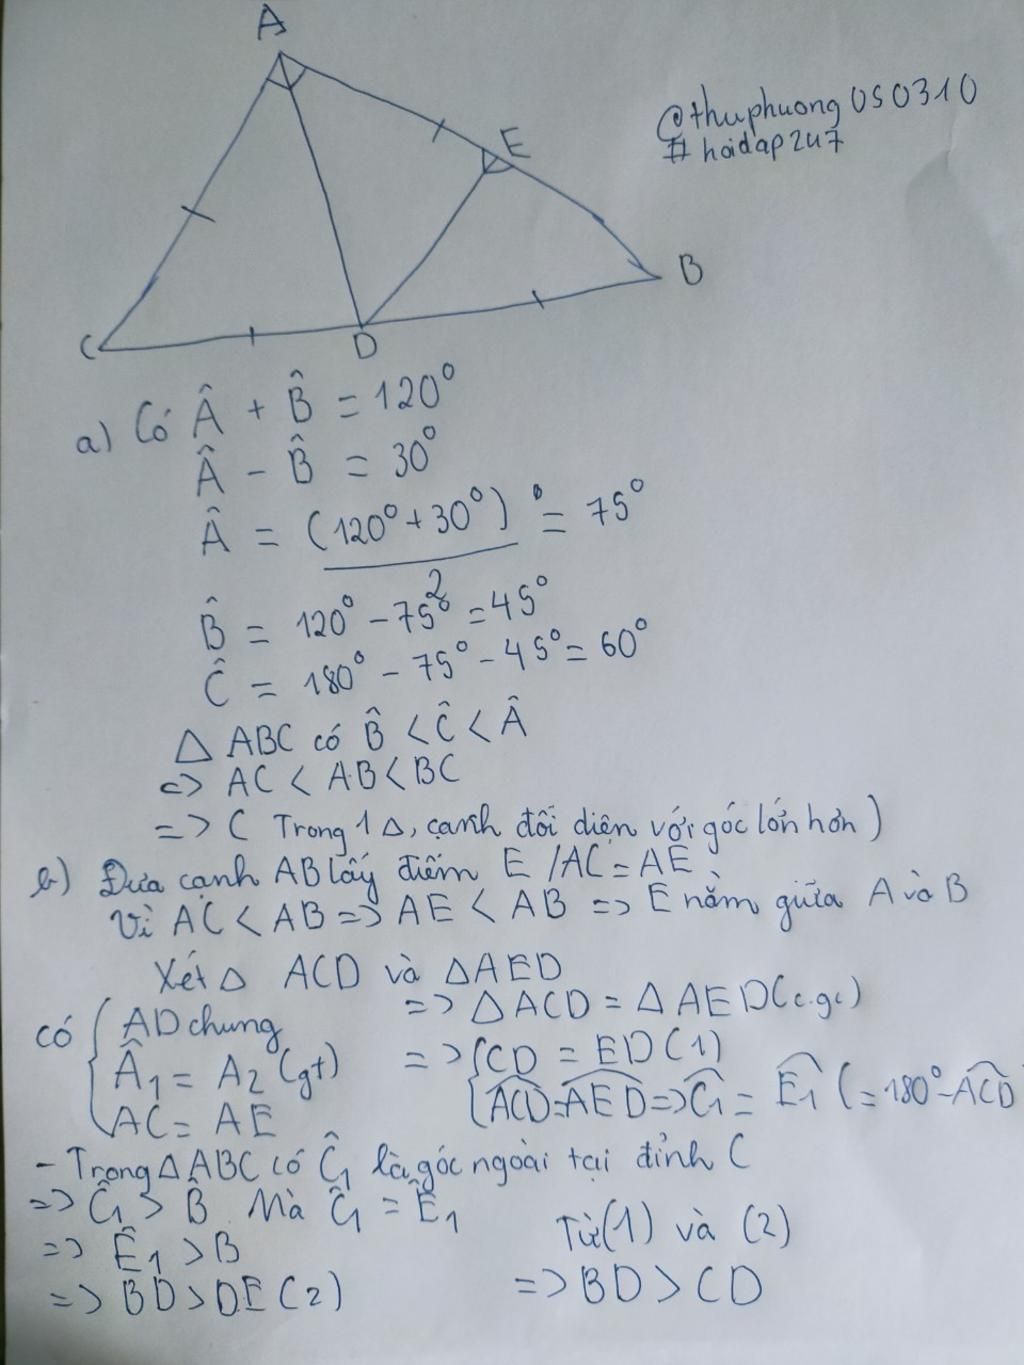 A
@thuphuong050310
#hoidap247
E
B
C
D
a) Có Â + B̂ = 120°
Â - B̂ = 30°
Â = (120° + 30°) / 2 = 75°
B̂ = 120° - 75° = 45°
Ĉ = 180° - 75° - 45° = 60°
△ ABC có B̂ < Ĉ < Â
=> AC < AB < BC
=> ( Trong 1 △, cạnh đối diện với góc lớn hơn )
b) Đưa cạnh AB lấy điểm E / AC = AE
Vì AC < AB => AE < AB => E nằm giữa A và B
Xét △ ACD và △AED
có { AD chung => △ ACD = △ AED (c.gc)
Â1 = A2 (gt) => { CD = ED (1)
AC = AE ACD = AED => Ĉ1 = Ê1 (= 180° - ACD
- Trong △ ABC có Ĉ1 là góc ngoài tại đỉnh C
=> Ĉ1 > B̂ Mà Ĉ1 = Ê1
=> Ê1 > B
=> BD > DE (2)
Từ (1) và (2)
=> BD > CD